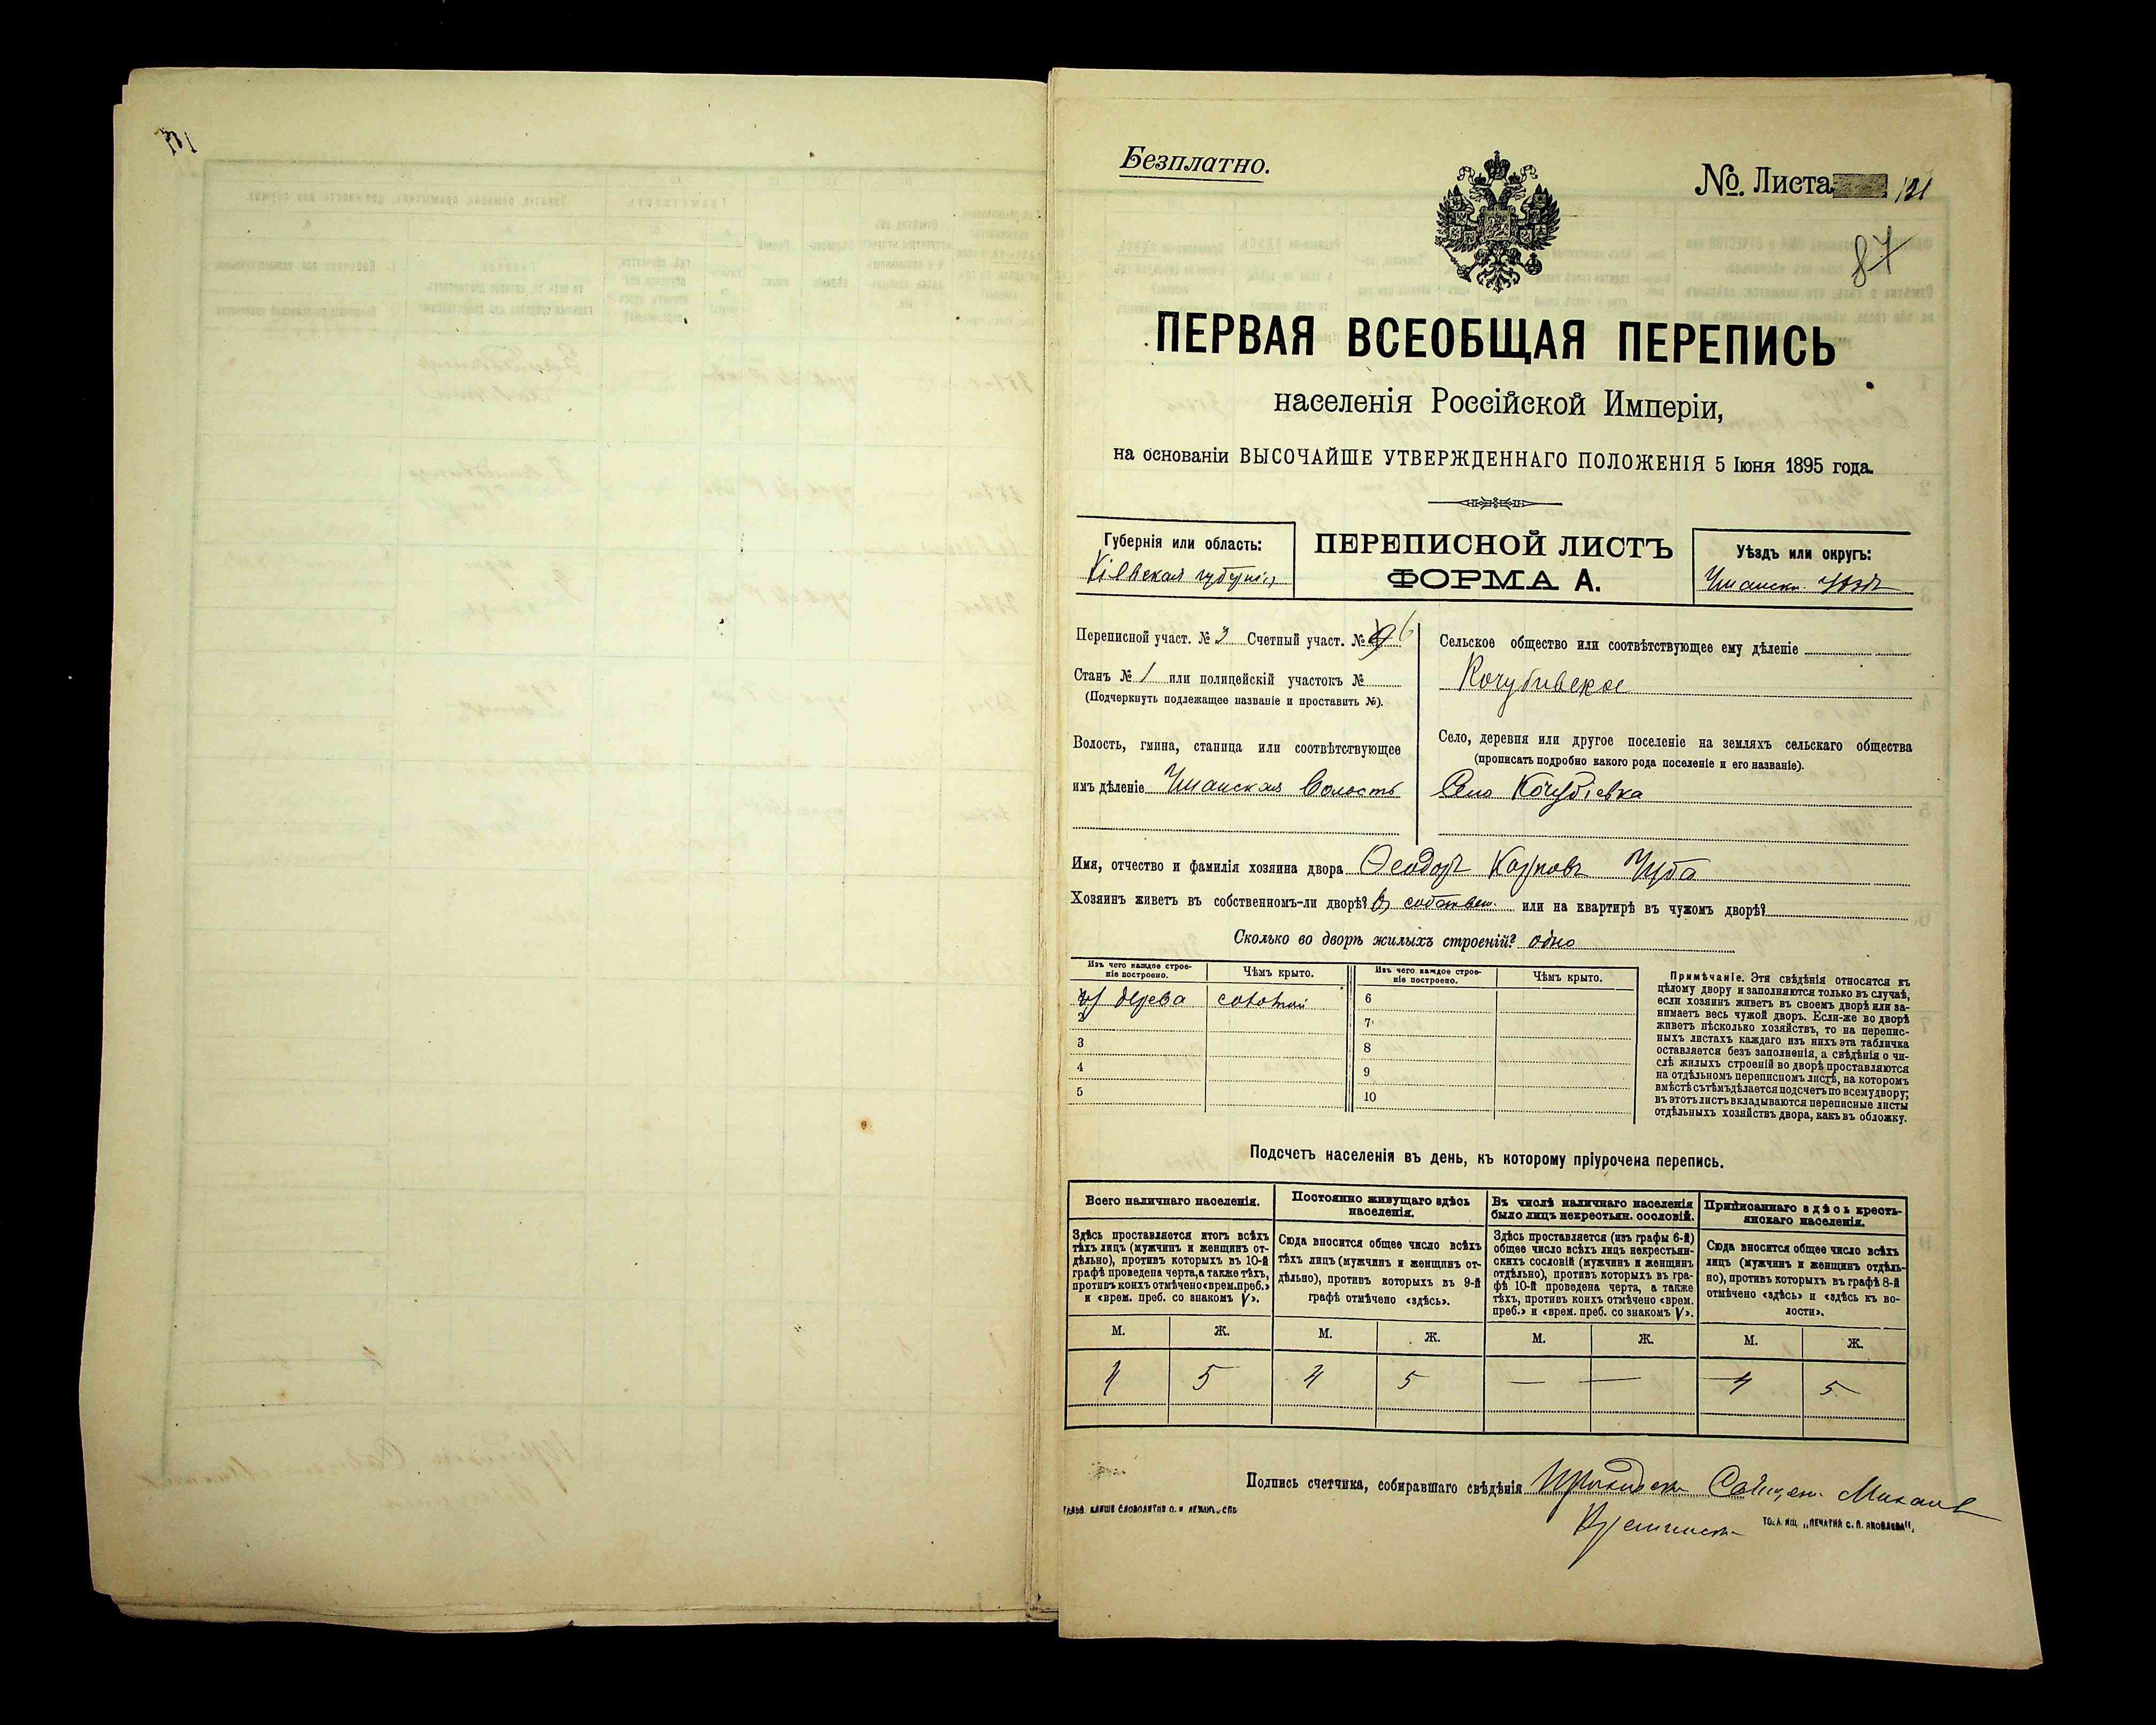 Безплатно.
№. Листа 121
87
ПЕРВАЯ ВСЕОБЩАЯ ПЕРЕПИСЬ
населенія Россійской Имперіи,
на основаніи ВЫСОЧАЙШЕ УТВЕРЖДЕННАГО ПОЛОЖЕНІЯ 5 Іюня 1895 года.
Губернія или область:
Кіевская губернія
ПЕРЕПИСНОЙ ЛИСТЪ
ФОРМА А.
Уѣздъ или округъ:
Уманск. уѣздъ
Переписной участ. № 3 Счетный участ. № 6
Станъ № 1 или полицейскій участокъ №
(Подчеркнуть подлежащее названіе и проставить №).
Волость, гмина, станица или соотвѣтствующее
имъ дѣленіе Уманская Волость
Сельское общество или соотвѣтствующее ему дѣленіе
Кочубивское
Село, деревня или другое поселеніе на земляхъ сельскаго общества
(прописать подробно какого рода поселеніе и его названіе).
Село Кочубіевка
Имя, отчество и фамилія хозяина двора Ѳеодоръ Карповъ Чуба
Хозяинъ живетъ въ собственномъ-ли дворѣ? въ собствен. или на квартирѣ въ чужомъ дворѣ?
Сколько во дворѣ жилыхъ строеній? одно
Изъ чего каждое строе-
ніе построено.
Чѣмъ крыто.
Изъ чего каждое строе-
ніе построено.
Чѣмъ крыто.
изъ дерева соломой
2
3
4
5
6
7
8
9
10
Примѣчаніе. Эти свѣдѣнія относятся къ
цѣлому двору и заполняются только въ случаѣ,
если хозяинъ живетъ въ своемъ дворѣ или за-
нимаетъ весь чужой дворъ. Если-же во дворѣ
живетъ нѣсколько хозяйствъ, то на перепис-
ныхъ листахъ каждаго изъ нихъ эта табличка
оставляется безъ заполненія, а свѣдѣнія о чи-
слѣ жилыхъ строеній во дворѣ проставляются
на отдѣльномъ переписномъ листѣ, на которомъ
вмѣстѣ съ тѣмъ дѣлается подсчетъ по всему двору;
въ этотъ листъ вкладываются переписные листы
отдѣльныхъ хозяйствъ двора, какъ въ обложку.
Подсчетъ населенія въ день, къ которому пріурочена перепись.
Всего наличнаго населенія.
Здѣсь проставляется итогъ всѣхъ
тѣхъ лицъ (мужчинъ и женщинъ от-
дѣльно), противъ которыхъ въ 10-й
графѣ проведена черта, а также тѣхъ,
противъ коихъ отмѣчено «врем. преб.»
и «врем. преб. со знакомъ V».
Постоянно живущаго здѣсь
населенія.
Сюда вносится общее число всѣхъ
тѣхъ лицъ (мужчинъ и женщинъ от-
дѣльно), противъ которыхъ въ 9-й
графѣ отмѣчено «здѣсь».
Въ числѣ наличнаго населенія
было лицъ некрестьян. сословій.
Здѣсь проставляется (изъ графы 6-й)
общее число всѣхъ лицъ некрестьян-
скихъ сословій (мужчинъ и женщинъ
отдѣльно), противъ которыхъ въ гра-
фѣ 10-й проведена черта, а также
тѣхъ, противъ коихъ отмѣчено «врем.
преб.» и «врем. преб. со знакомъ V».
Приписаннаго здѣсь кресть-
янскаго населенія.
Сюда вносится общее число всѣхъ
лицъ (мужчинъ и женщинъ отдѣль-
но), противъ которыхъ въ графѣ 8-й
отмѣчено «здѣсь» и «здѣсь къ во-
лости».
М. Ж. М. Ж. М. Ж. М. Ж.
4 5 4 5 — — 4 5
Подпись счетчика, собиравшаго свѣдѣнія Священ. Михаил
ТО... „ПЕЧАТНЯ С. П. ЯКОВЛЕВА".